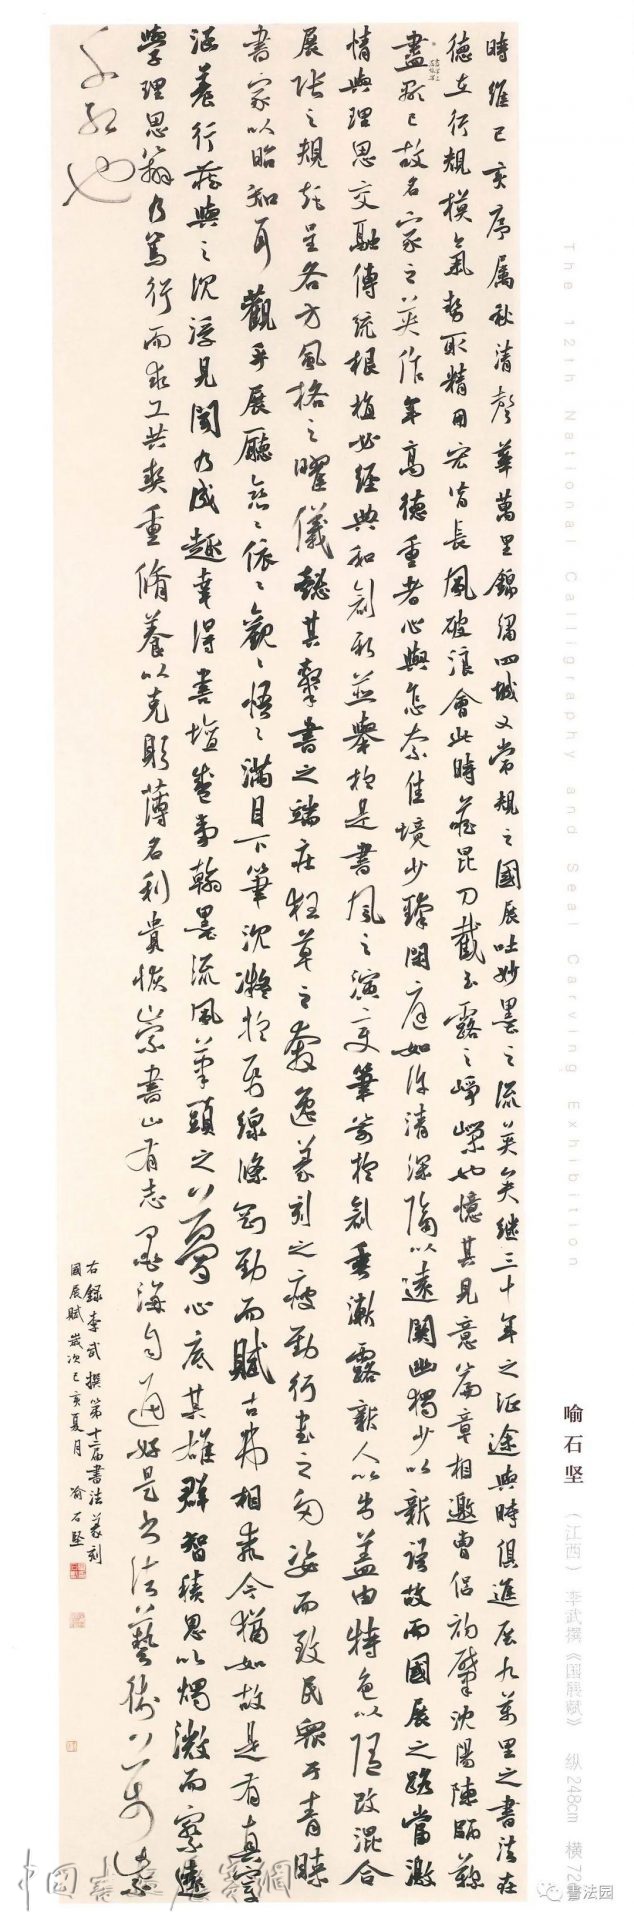 時維己亥序屬秋清聲華萬里錦繡四城又常規之國展吐妙墨之流英矣继三十年之征途與時俱進展九萬里之書法在
德立行規模氣勢取精用宏皆長風破浪會此時若昆刀截玉露之崢嶸也憶其見意篇章相邀曹侶初肇沈陽陳
盡彩已故名家之英作年高德重者心與怎奈佳境少臻閑庭如許清深隔以遠關幽獨少以新語故而國展之路當激
情與理思交融傳統根植必經典和創新並舉於是書風之演變筆勢於創垂漸露新人以出蓋由特色以改混合
展陈之規範呈各方風格之曜儀懿其擊書之端庄狂草之放逸篆刻之瘦勁行書之多姿而致民眾于青睞
書家以昭知耳觀乎展廳戀〻依〻觀〻悟〻滿目下筆沈凝於形線條剛勁而賦古弗相乖今猶如故是有真實
涵養行藏與之沉浮見聞乃成趣幸得書壇盛事翰墨流風筆頭之夢心底其雄群智積思以燭微而察遠
學理思辨乃篤行而求工共奏重脩養以克彰薄名利貴恢崇書山有志墨海自通好是书法藝術
千秋也
右錄李武撰第十二届書法篆刻
國展賦歲次己亥夏月 喻石堅
The 12th National Calligraphy and Seal Carving Exhibition
喻石坚 （江西） 李武撰《国展赋》 纵248cm 横72
中國書法
書法园